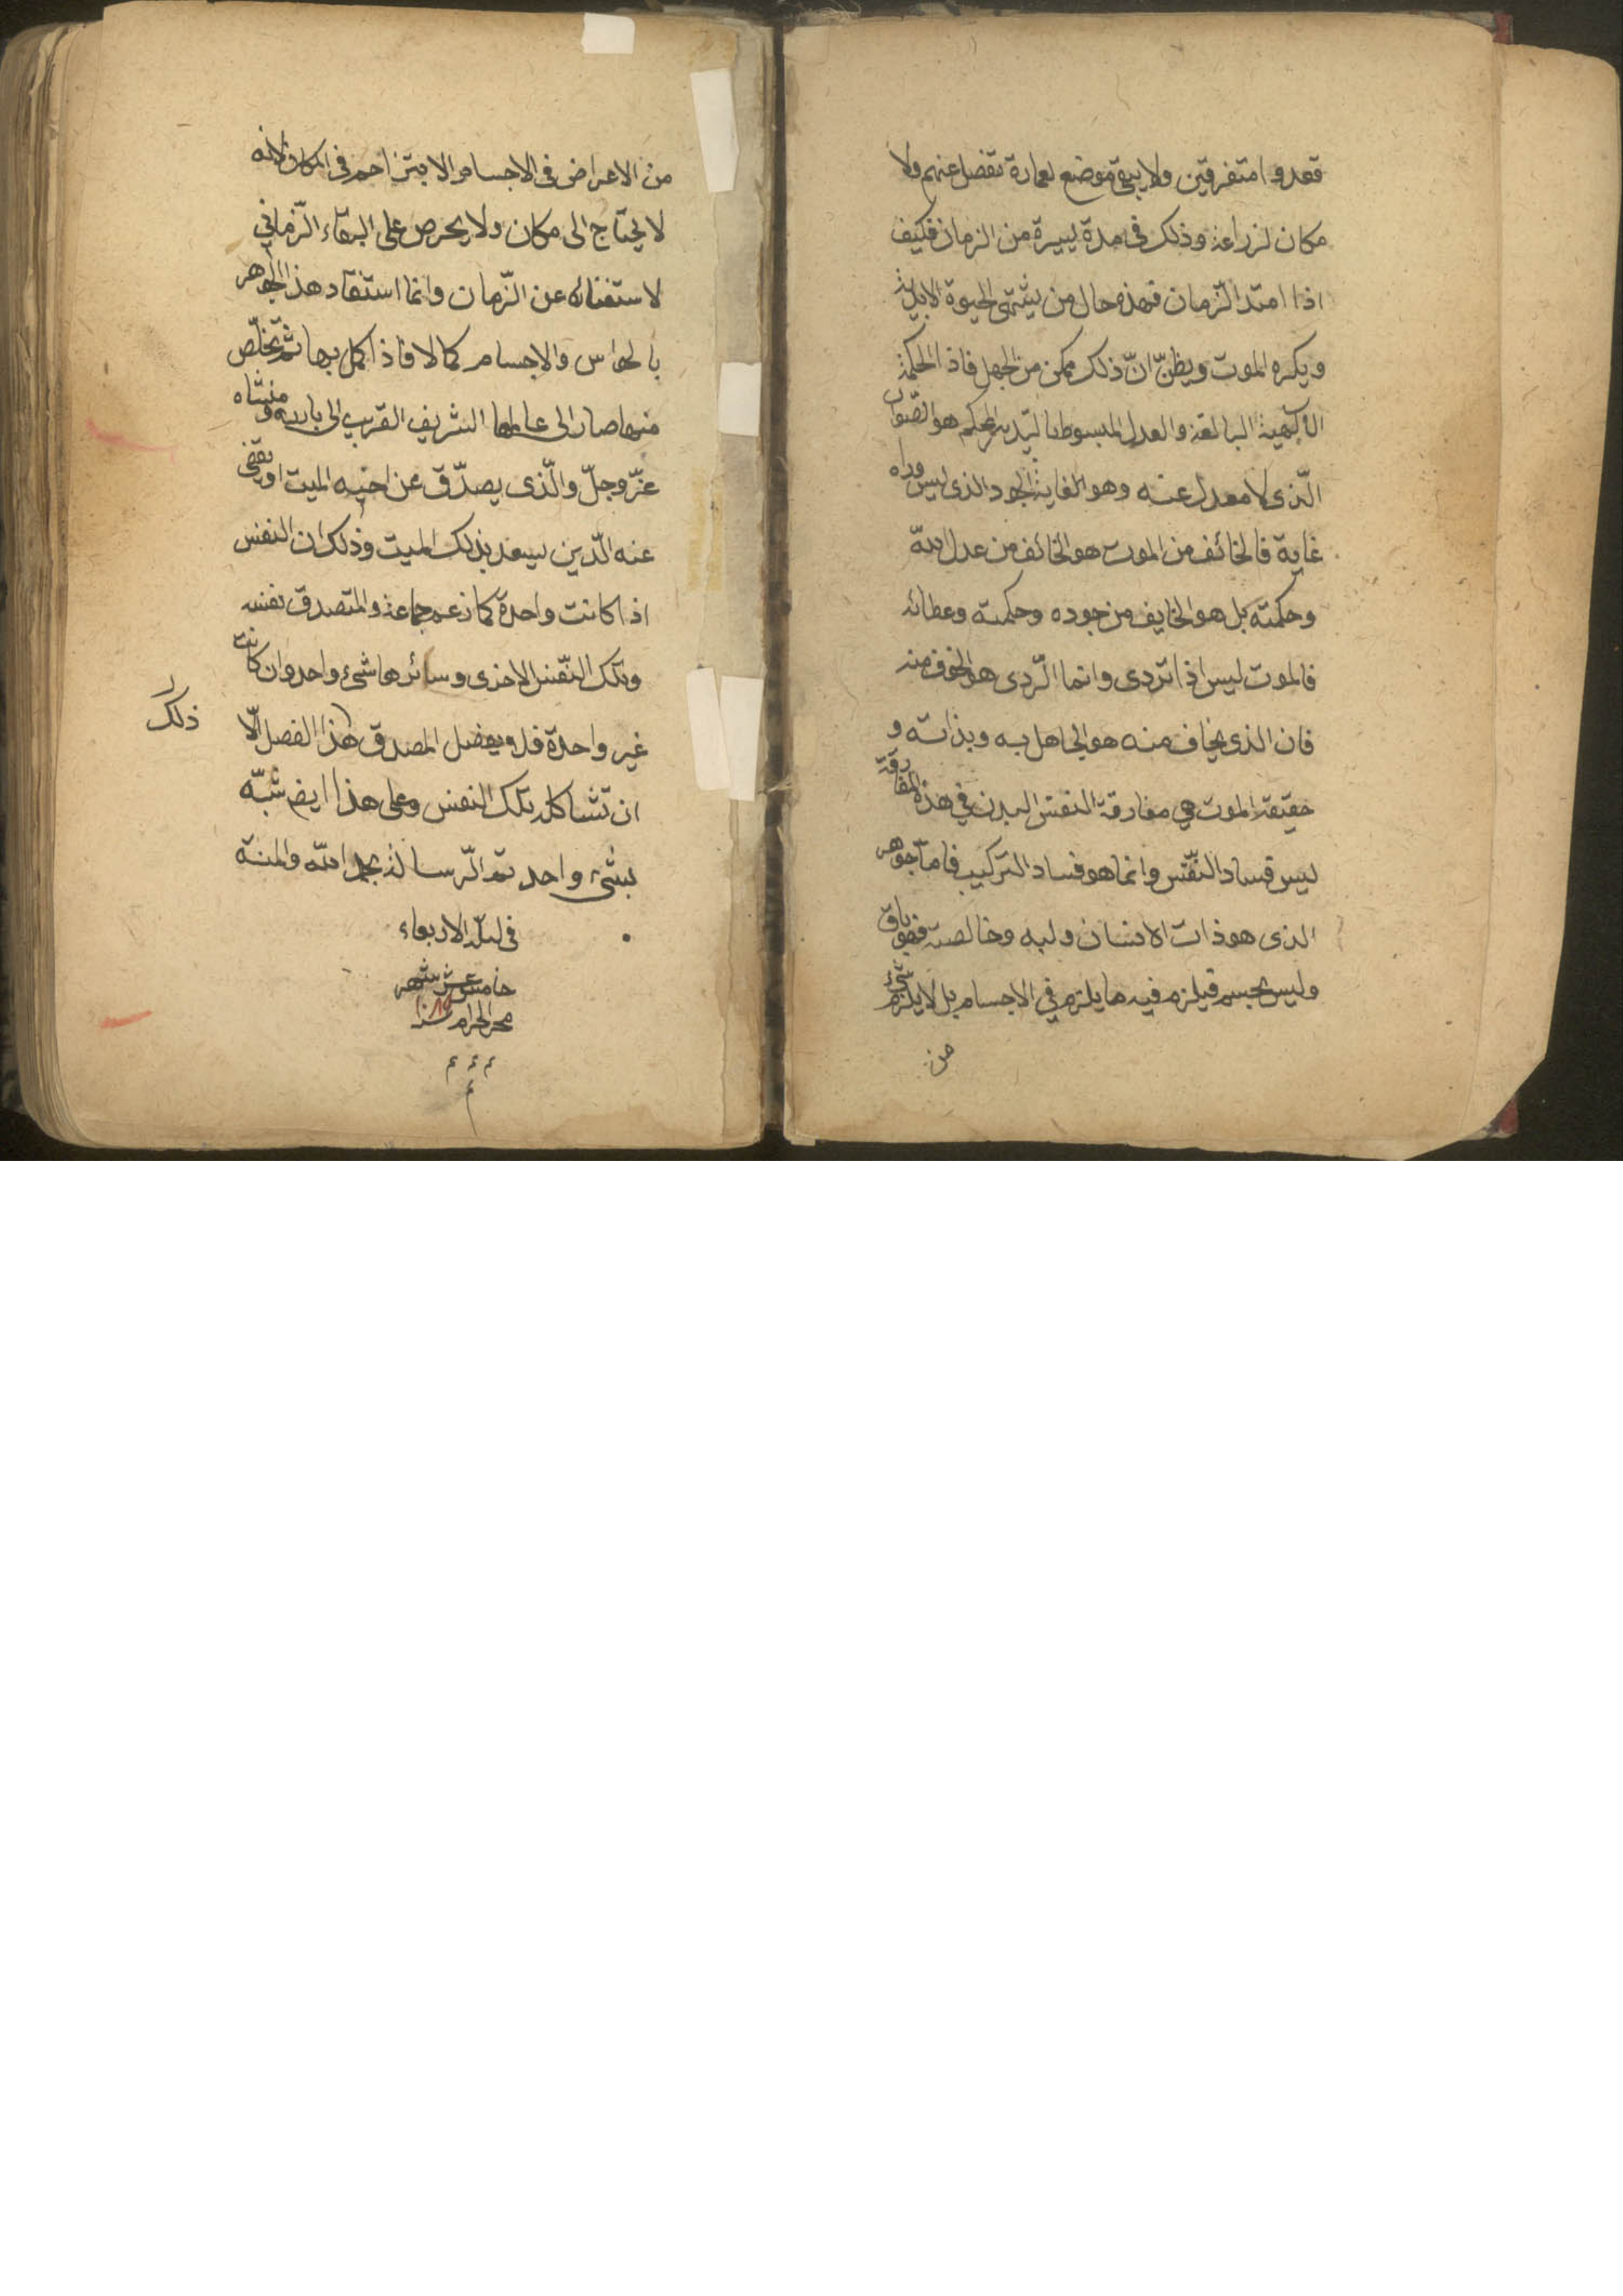 قعدوا متفرقين ولا يبقى موضع لعمارة تفضل عنهم ولا
مكان لزراعة وذلك في مدة يسيرة من الزمان فكيف
اذا امتد الزّمان فهذه حال من يشتهى الحيوة الابدية
ويكره الموت ويظنّ انّ ذلك ممكن من الجهل فاذا الحكمة
الالهية البالغة والعدل المبسوط بالتدبير المحكم هو الصّواب
الّذى لا معدل عنه وهو الغاية الجود الذى ليس وراه
غاية فالخائف من الموت هو الخائف من عدل اللّه
وحكمته بل هو الخايف من جوده وحكمته وعطائه
فالموت ليس اذا تردى وانما الرّدى هو الخوف منه
فان الذى يخاف منه هو الجاهل به وبذاته و
حقيقة الموت هي مفارقة النفس البدن في هذه المفارقة
ليس فساد النّفس وانما هو فساد التركيب فامّا جوهر
الذى هو ذات الانسان ولبه وخالصته فهو باق
وليس بجسم فيلزم فيه ما يلزم في الاجسام بل لا يلزم شىء
من
من الاعراض في الاجسام ولا يتزاحم في المكان لانه
لا يحتاج الى مكان ولا يحرص على البقاء الزّماني
لاستغنائه عن الزّمان وانما استفاد هذا الجوهر
بالحواس والاجسام كمالا فاذا كمل بها ثم تخلّص
منها صار الى عالمها الشريف القريب الى باريه ومنشاه
عزّ وجلّ والّذى يصدّق عن اخيه الميت او يقضى
عنه الدّين يسعد بذلك الميت وذلك ان النفس
اذا كانت واحدة كما زعم جماعة والمتصدق نفسه
وتلك النّفس الاخرى وسائرها شىء واحد وان كانت
غير واحدة فلم يفضل المصدق هذا الفصل الّا
ذلك
ان تشاكله بتلك النفس وعلى هذا ايض شبّه
بشىء واحد تم الرّسالة بحمد اللّه والمنة
فى ليلة الاربعاء
خامس عشر شهر
محرم الحرام سنة